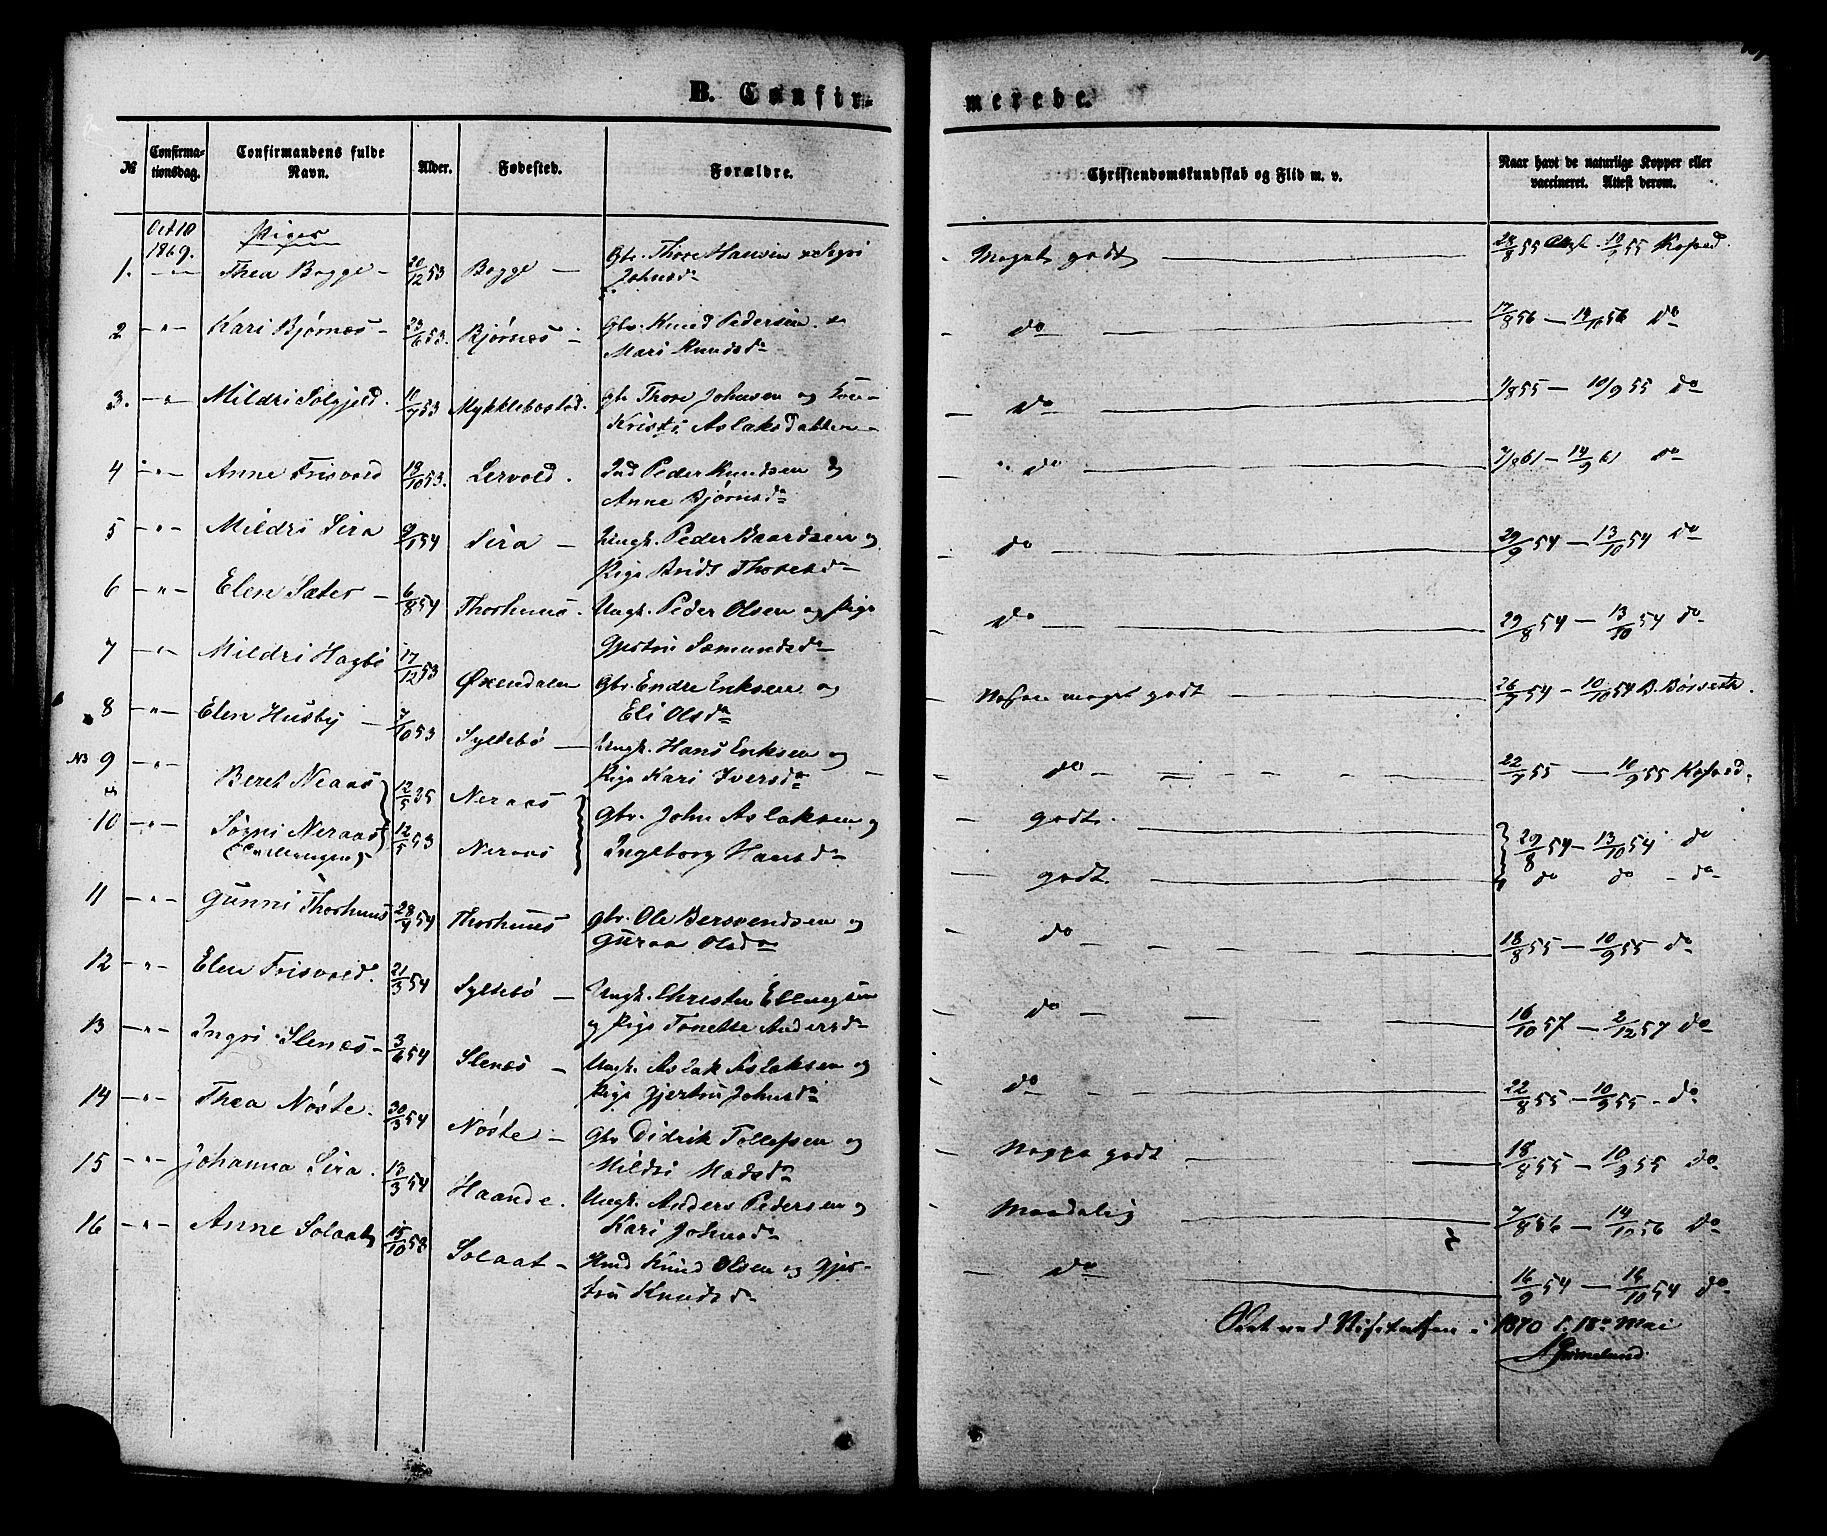 B. Confir-
merede.
№ Confirmationsdag. Confirmandens fulde Navn. Alder. Fødested. Forældre. Christendomskundskab og Flid m. v. Naar havt de naturlige Kopper eller vaccineret. Attest derom.
Oct 10 1869. Piger
1. — Thea Bogge — 20/12 53 Bogge — Gbr. Thore Hansen Johnsd. Meget godt 28/8 55 19/9 55
2 — " — Kari Bjørnes — 23/6 53. Bjørnes — Gbr. Knud Pedersen & Mari Knudsd. do 17/8 56 — do
3. — " — Mildri Solsjeld. 11/7 53 Myklebostad. Gbr Thore Johnsen og Kristi Aslaksdatter — do 7/8 55 — 10/9 55 do
4 — " — Anne Frisvold 19/10 53. Lervold. Ind Peder Knudsen og Anne Bjørnsd. do 7/8 61 — 14/9 61 do
5 — " — Mildri Sira 9/1 54 Sira — Ungk. Peder Baardsen og Pige Thoresd. do 29/9 54 — 13/10 54 do
6 — " — Elen Sæter — 6/8 54 Thorhuus. Ungk. Peder Olsen og Pige Gjertru Sæmundsd. do 29/8 54 — 13/10 54 do
7 — " — Mildri Hagbø 17/12 53 Øxendalen Gbr. Endre Eriksen og Eli Olsd. meget godt 26/9 54 — 10/10 54
8 — " — Elen Husby — 7/10 53 Syltebø — Ungk. Hans Eriksen og Pige Kari Iversd. do 22/9 55 — 10/9 55
NB 9 — " — Beret Neraas 12/5 35 Neraas Gbr. John Aslaksen og godt. 29/8 54 — 13/10 54 do
10 — " — Neraas 12/5 53 Neraas Ingeborg Hansd. godt. do do — do
(Tvillinger)
11 — " — Gunni Thorhuus 28/9 54 Thorhuus Gbr. Ole Bersvendsen og Guraa Olsd. do 18/8 55 — 10/9 55 do
12 — " — Elen Frisvold. 21/3 54 Syltebø — Ungk. Christen Ellingsen og Pige Tonette Andersd. do 16/10 57 — 2/12 57 do
13 — " — Ingri Slenes — 3/6 54 Slenes — Ungk. Aslak Aslaksen og Pige Gjertru Johnsd. do 22/8 55 — 10/9 55 — do
14 — " — Thea Nøste. 30/3 54 Nøste — Gbr Didrik Tollefsen og Mildri Madsd. Noppe godt 18/8 55 — 10/9 55 do
15 — " — Johanna Sira. 13/3 54 Haande. Ungk. Anders Pedersen og Kari Johnsd. Maadelig 7/8 56 — 14/10 56 do
16 — " — Anne Solaat 15/10 53 Solaat — Knud Olsen og Gjertru Knudsd. do 16/9 54 — 16/10 54 do
Seet ved Visitatsen i 1870 d. 18de Mai
Grimelund